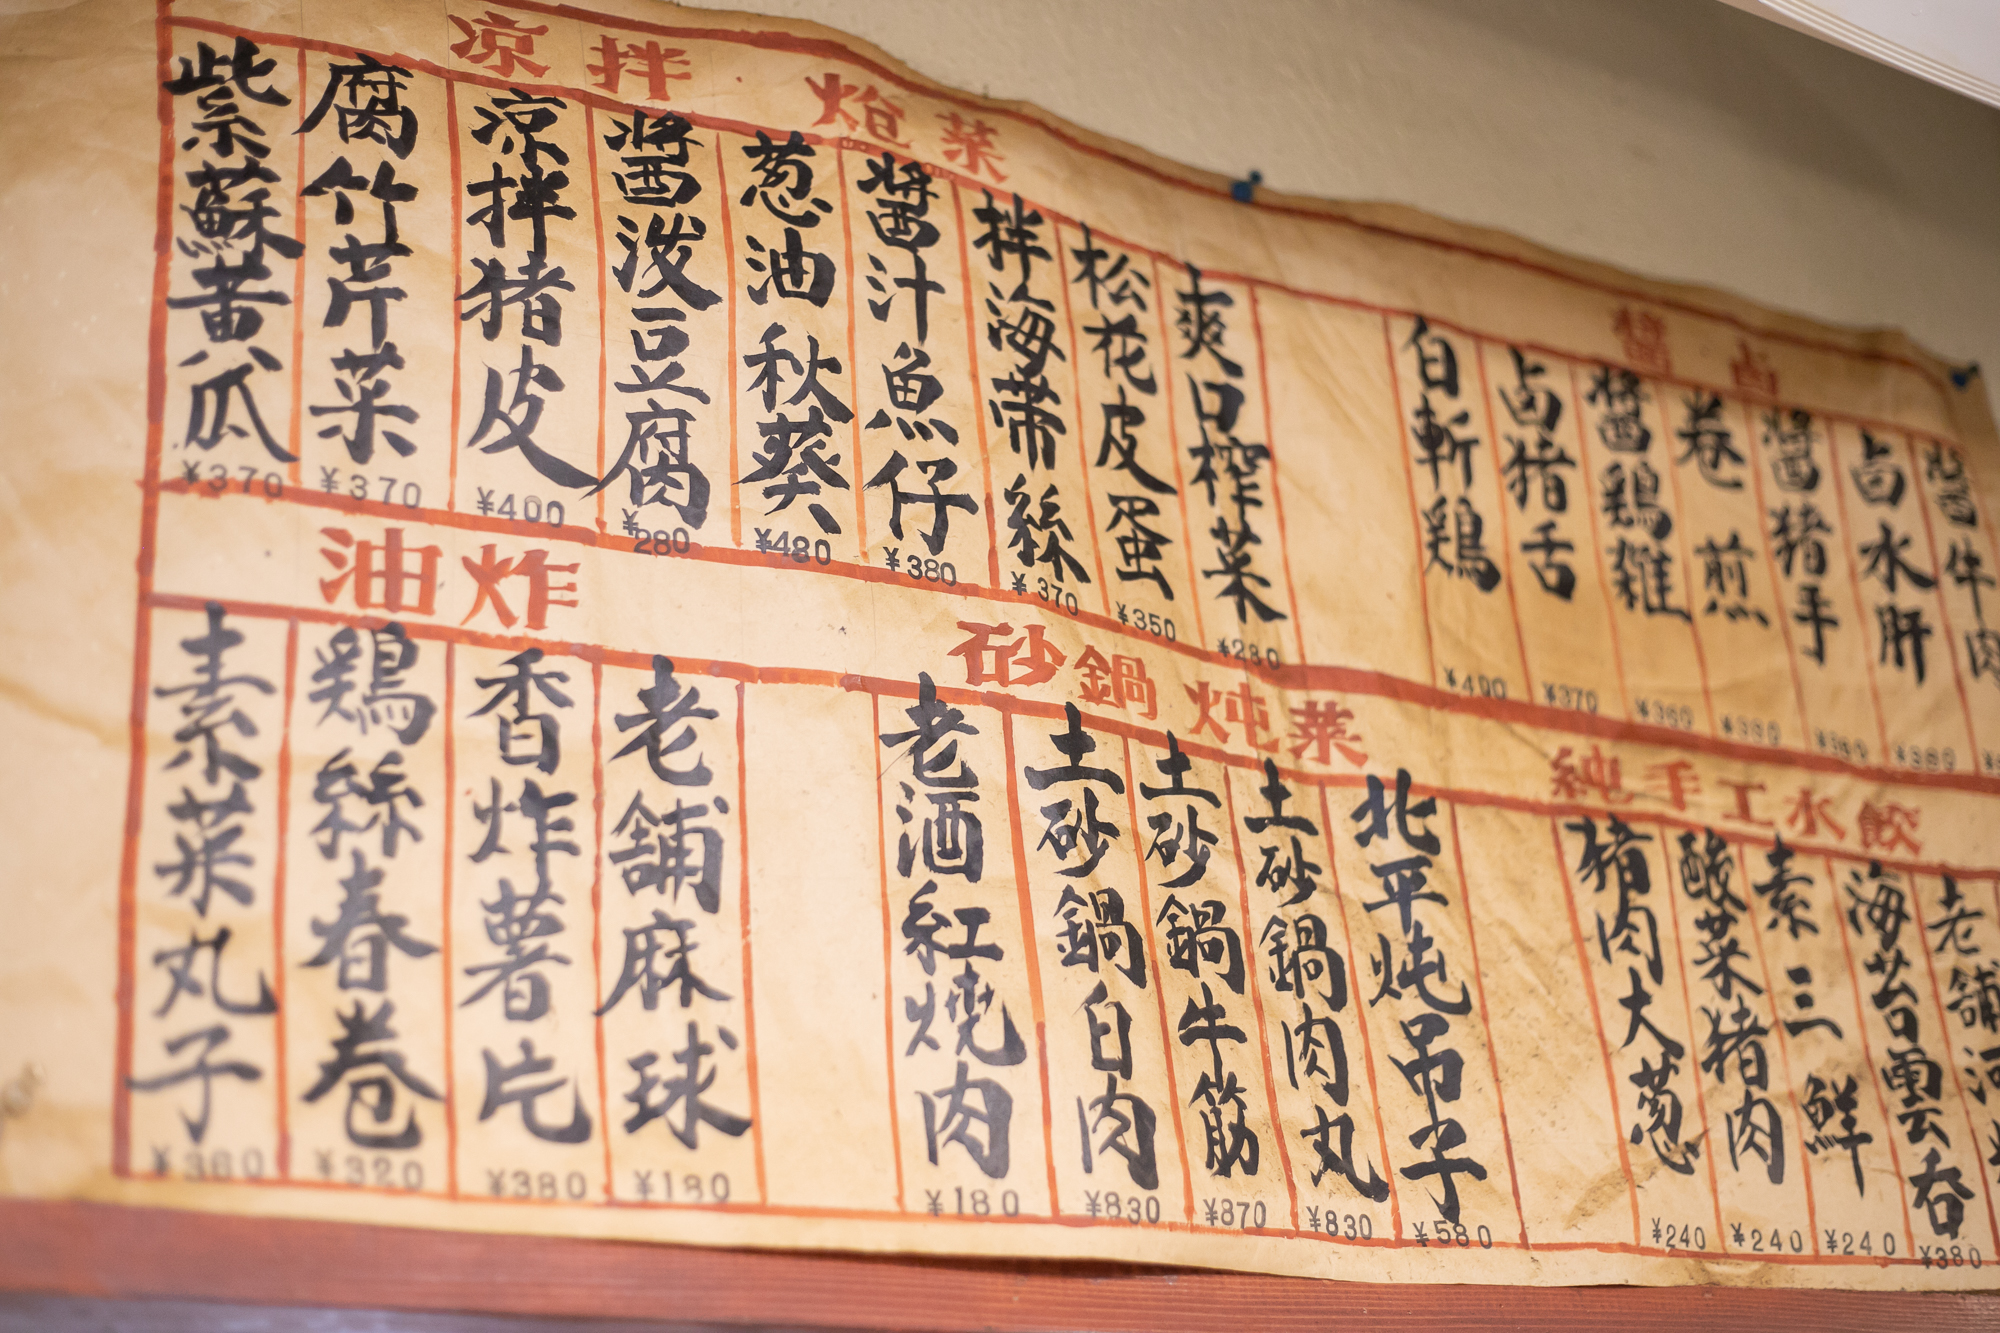 凉拌 炝菜
紫蘇黄瓜
¥370
腐竹芹菜
¥370
凉拌猪皮
¥400
醬泼豆腐
¥280
葱油秋葵
¥480
醬汁魚仔
¥380
拌海带絲
¥370
松花皮蛋
¥350
爽口榨菜
¥280
醬卤
白斬鶏
¥400
卤猪舌
¥370
醬鶏雜
¥360
卷煎
¥390
醬猪手
卤水肝
¥380
醬牛肉
油炸
素菜丸子
¥360
鶏絲春卷
¥320
香炸薯片
¥380
老舖麻球
¥180
砂鍋炖菜
老酒紅燒肉
¥180
土砂鍋白肉
¥830
土砂鍋牛筋
¥870
土砂鍋肉丸
¥830
北平炖吊子
¥580
純手工水餃
猪肉大葱
¥240
酸菜猪肉
¥240
素三鮮
¥240
海苔雲吞
¥380
老舖河